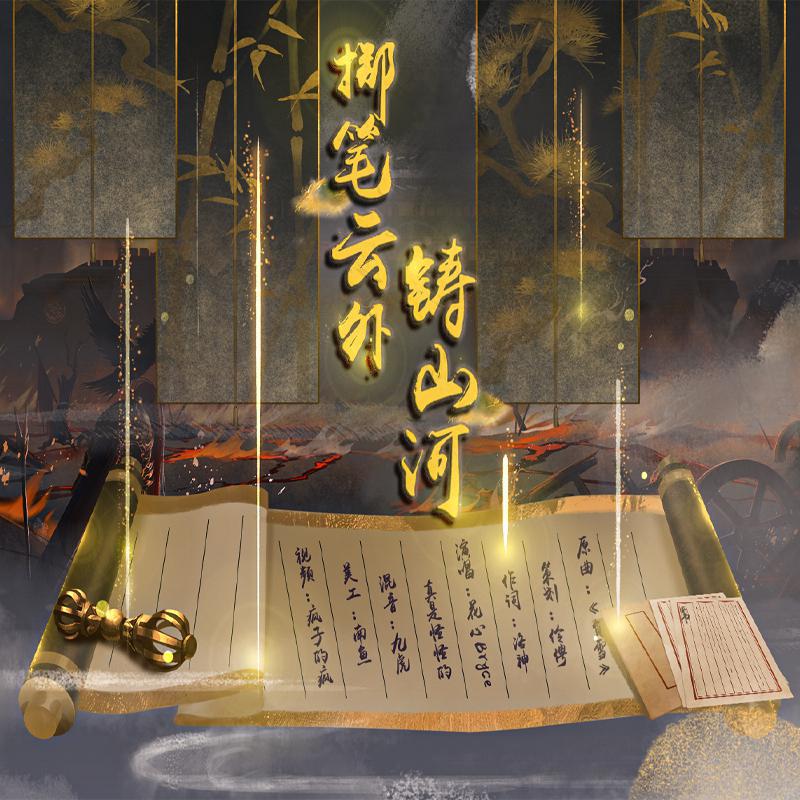 掷笔云外
铸山河
原曲：《
雪》
策划：伶俜
作词：洛神
演唱：花心Bryce
真是怪怪的
混音：九虎
美工：南鱼
视频：疯子的疯